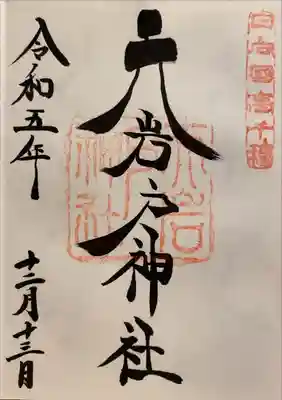 日向国高千穂
天岩戸神社
天岩戸神社
令和五年
十二月十三日